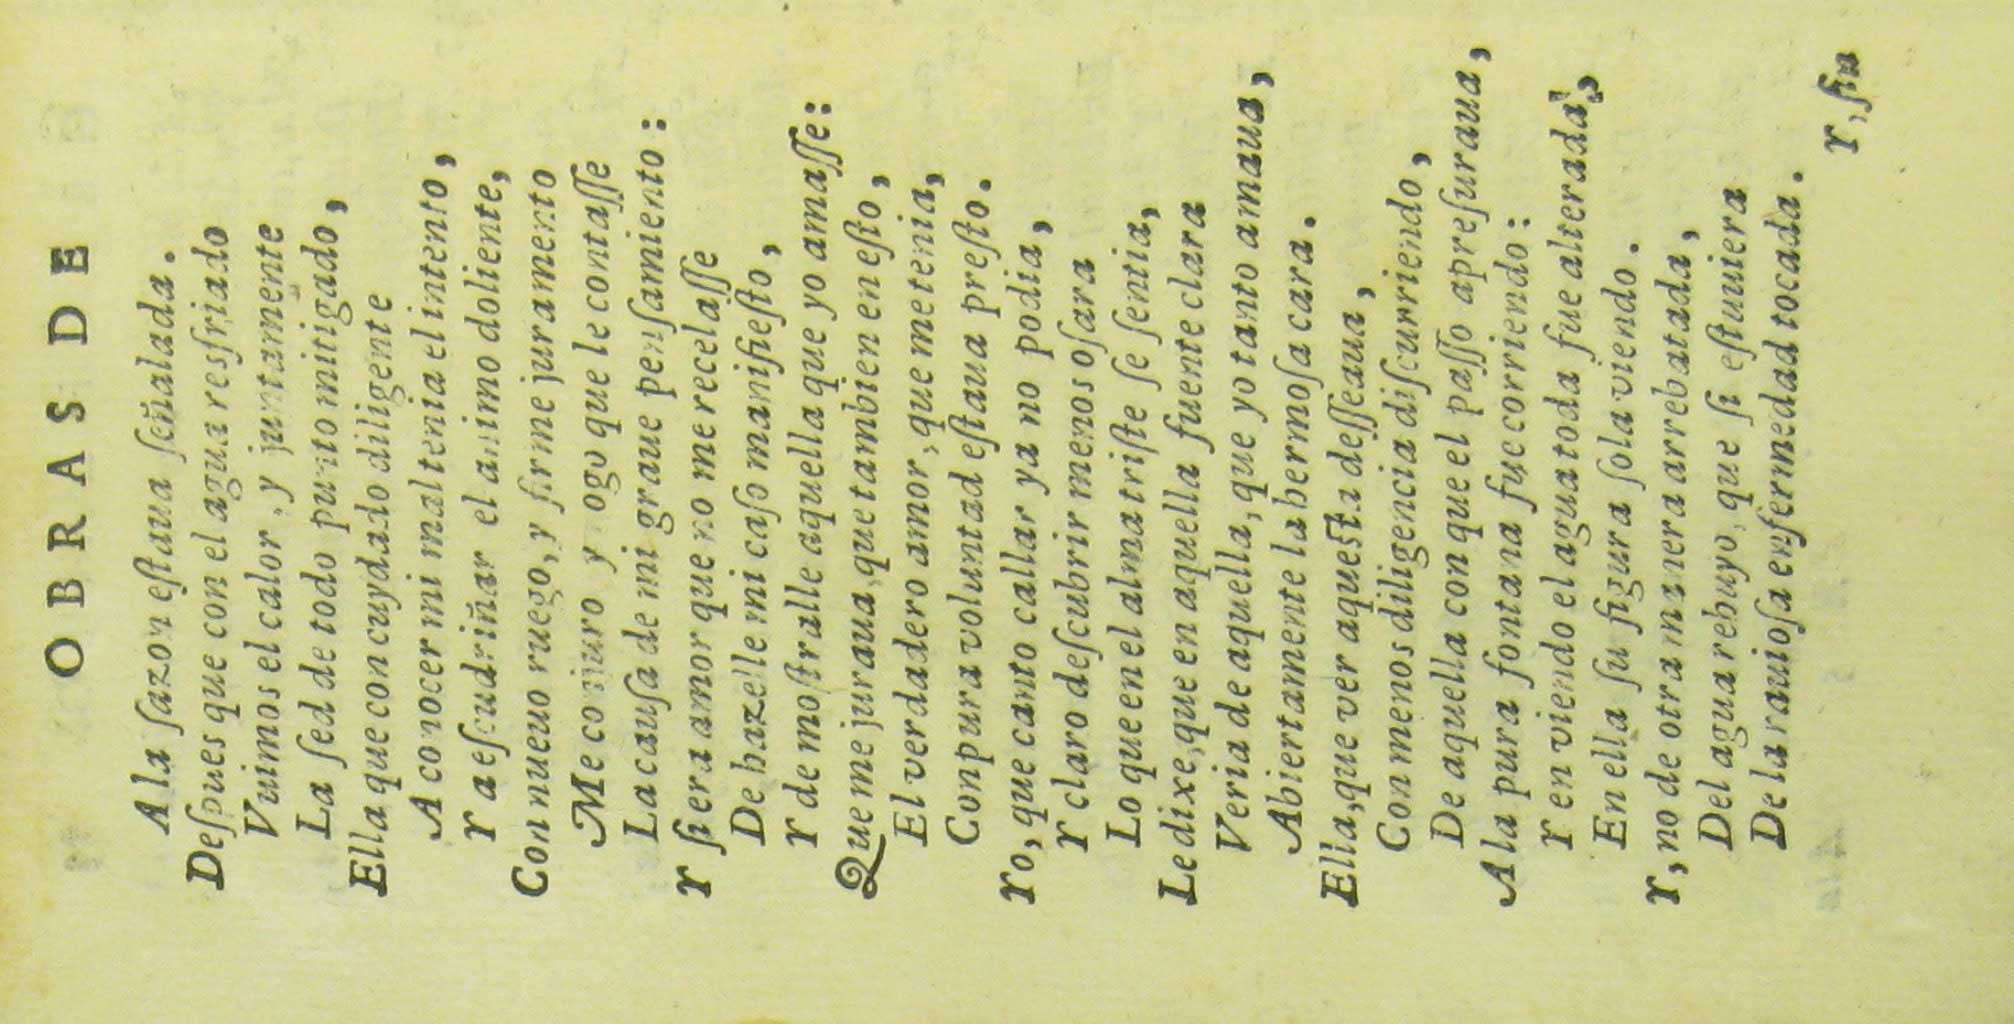 OBRAS DE
A la ſazon eſtaua ſeñalada.
Deſpues que con el agua resfriado
Vuimos el calor, y juntamente
La ſed de todo punto mitigado,
Ella que con cuydado diligente
A conocer mi mal tenia el intento,
Y a eſcudriñar el animo doliente,
Con nueuo ruego, y firme juramento
Me conjuro y rogo que le contaſſe
La cauſa de mi graue penſamiento:
Y ſi era amor que no me recelaſſe
De hazelle mi caſo manifieſto,
Y de moſtralle aquella que yo amaſſe:
Que me juraua, que tambien en eſto,
El verdadero amor, que me tenia,
Con pura voluntad eſtaua preſto.
Yo, que canto callar ya no podia,
Y claro deſcubrir menos oſara
Lo que en el alma triſte ſe ſentia,
Le dixe, que en aquella fuente clara
Veria de aquella, que yo tanto amaua,
Abiertamente la hermoſa cara.
Ella, que ver aqueſta deſſeaua,
Con menos diligencia diſcurriendo,
De aquella con que el paſſo apreſuraua,
A la pura fontana fue corriendo:
Y en viendo el agua toda fue alterada,
En ella ſu figura ſola viendo.
Y, no de otra manera arrebatada,
Del agua rehuyo, que ſi eſtuuiera
De la rauioſa enfermedad tocada.
Y, ſin